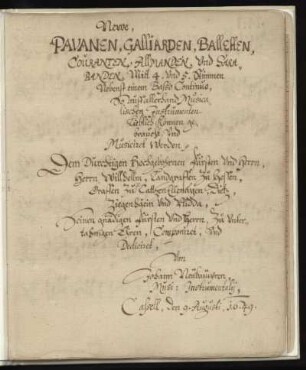 Newe,
PAVANEN, GALLIARDEN, Balletten,
COURANTEN, Allmanden, Und SARA
BANDEN, Mitt 4. Und 5. Stimmen
Nebenst einem Basso Continuo,
So mitt allerhand Musica
lischen Instrumenten
können ge
braucht, Und
Musiciret Werden,
Dem Durchleuchtigen Hochgebornen Fürsten Und Herrn,
Herrn Willhelmen, Landgraffen Zu Hessen,
Graffen Zu Catzenelenbogen, Dietz,
Ziegenhain Und Nidda,
Seinem gnädigen Fürsten Und Herrn, Zu Unter,
tähnigen Ehren, Componiret, Und
Dediciret,
Von
Johann Neubauern,
Music: Instrumentali,
Cassell, den 9. Augusti, 1649.